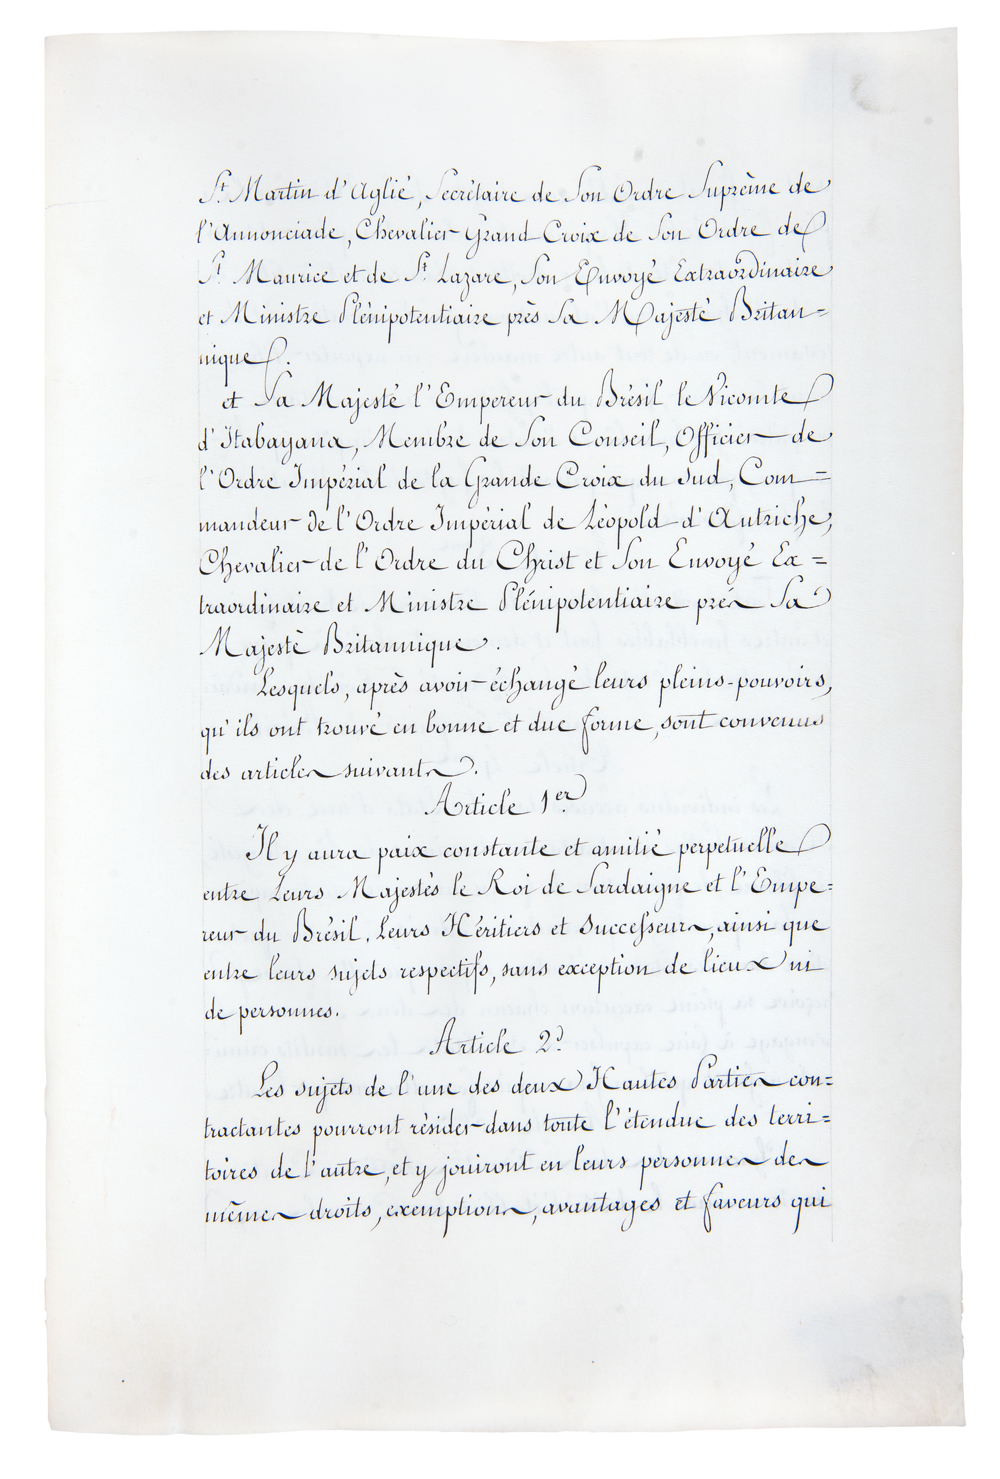 St Martin d'Aglié, Secrétaire de Son Ordre Suprême de
l'Annonciade, Chevalier Grand Croix de Son Ordre de
St Maurice et de St Lazare, Son Envoyé Extraordinaire
et Ministre Plénipotentiaire près Sa Majesté Britan=
nique.
et Sa Majesté l'Empereur du Brésil le Vicomte
d'Itabayana, Membre de Son Conseil, Officier de
l'Ordre Impérial de la Grande Croix du Sud, Com=
mandeur de l'Ordre Impérial de Léopold d'Autriche,
Chevalier de l'Ordre du Christ et Son Envoyé Ex=
traordinaire et Ministre Plénipotentiaire près Sa
Majesté Britannique.
Lesquels, après avoir échangé leurs pleins-pouvoirs,
qu'ils ont trouvé en bonne et due forme, sont convenus
des articles suivants.
Article 1er
Il y aura paix constante et amitié perpetuelle
entre Leurs Majestés le Roi de Sardaigne et l'Empe=
reur du Brésil, Leurs Héritiers et Successeurs, ainsi que
entre leurs sujets respectifs, sans exception de lieux ni
de personnes.
Article 2d
Les sujets de l'une des deux Hautes Parties con=
tractantes pourront résider dans toute l'étendue des terri=
toires de l'autre, et y jouiront en leurs personnes des
mêmes droits, exemptions, avantages et faveurs qui